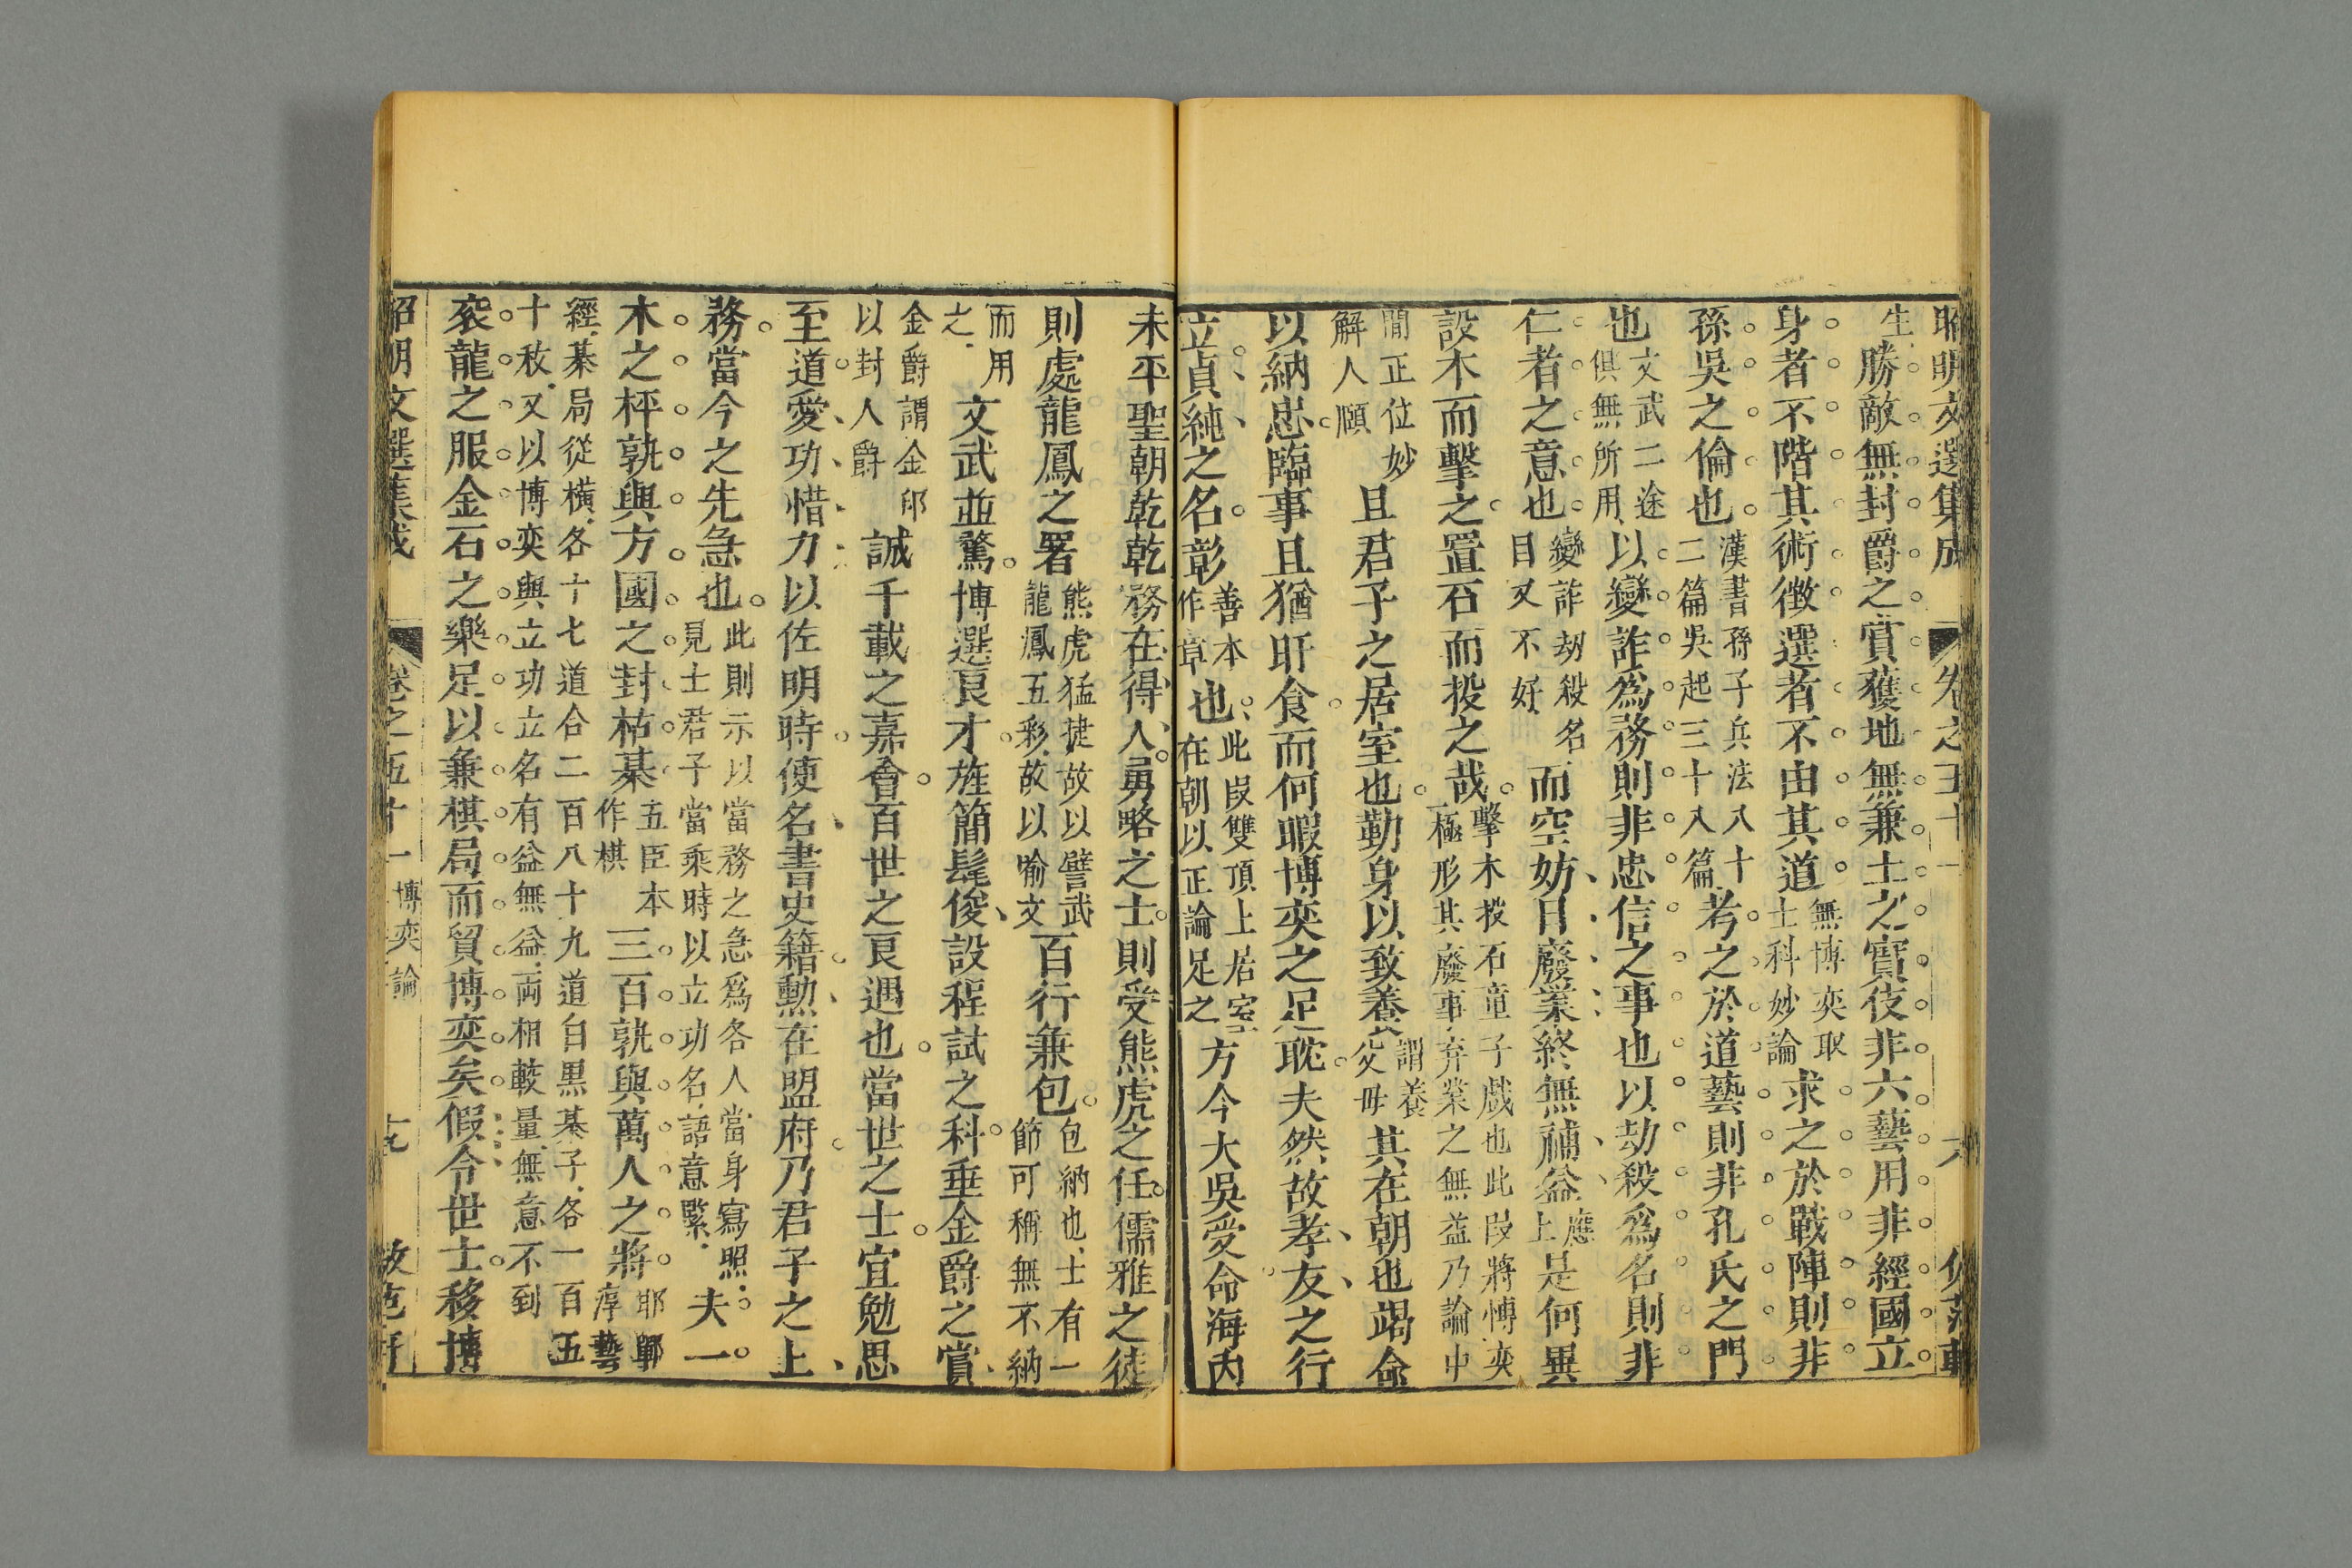 昭明文選集成 卷之五十一 六
生勝敵無封爵之賞獲地無兼土之寶伎非六藝用非經國立
身者不階其術徵選者不由其道無博奕取士科妙論求之於戰陣則非
孫吳之倫也漢書孫子兵法八十二篇吳起三十八篇考之於道藝則非孔氏之門
也文武二途俱無所用以變詐爲務則非忠信之事也以劫殺爲名則非
仁者之意也變詐劫殺名目又不好而空妨日廢業終無補益應上是何異
設木而擊之置石而投之哉擊木投石童子戲也此段將博奕一極形其廢事弃業之無益乃論中
間正位妙解人頤且君子之居室也勤身以致養謂養父母其在朝也竭命
以納忠臨事且猶旰食而何暇博奕之足耽夫然故孝友之行
立貞純之名彰善本作章也此段雙頂上居室在朝以正論足之方今大吳受命海內
未平聖朝乾乾務在得人勇略之士則受熊虎之任儒雅之徒
則處龍鳳之署熊虎猛捷故以譬武龍鳳五彩故以喻文百行兼包包納也士有一節可稱無不納
而用之文武並騖博選良才旌簡髦俊設程試之科垂金爵之賞
金爵謂金印以封人爵誠千載之嘉會百世之良遇也當世之士宜勉思
至道愛功惜力以佐明時使名書史籍勳在盟府乃君子之上
務當今之先急也此則示以當務之急爲各人當身寫照見士君子當乘時以立功名語意緊夫一
木之枰孰與方國之封枯棊五臣本作棋三百孰與萬人之將邯鄲淳藝
經棊局從橫各十七道合二百八十九道白黒棊子各一百五十枚又以博奕與立功立名有益無益両相較量無意不到
袞龍之服金石之樂足以兼棋局而貿博奕矣假令世士移博
昭明文選集成 卷之五十一 博奕論